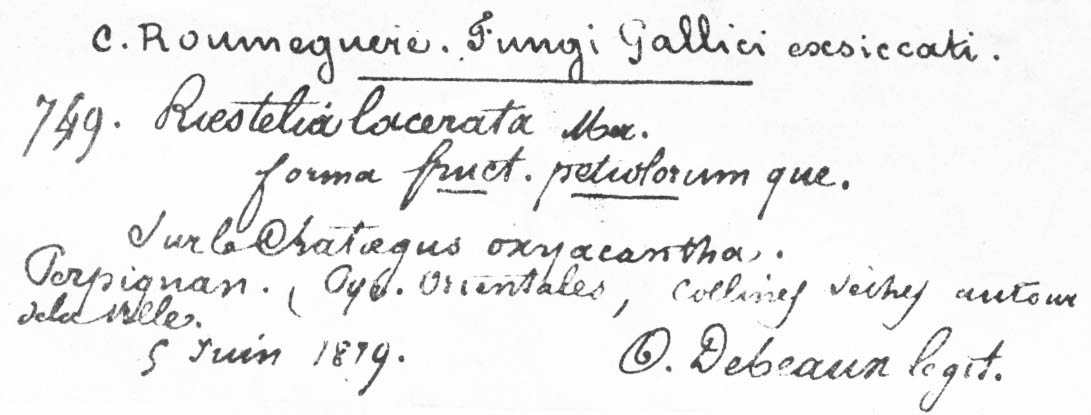 C. Roumeguere. Fungi Gallici exsiccati.
749. Rœstelia lacerata
forma fruct. petiolorum que.
Sur le Cratœgus oxyacantha.
Perpignan. (Pyr. Orientales, collines sèches autour
de la ville.
5 Juin 1879.
O. Debeaux legit.